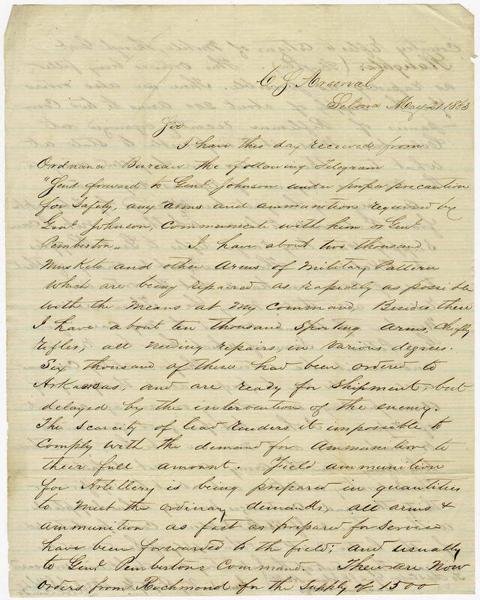 C. S. Arsenal
Selma May 21 1863
Sir
I have this day received from
Ordnance Bureau the following Telegram
"Send forward to Genl Johnson under proper precaution
for Safety, any arms and ammunition required by
Genl Johnson, Communicate with him or Genl
Pemberton" I have about two thousand
Muskets and other Arms of Military Pattern
which are being repaired as rapidly as possible
with the Means at My Command. Besides these
I have about ten thousand Sporting arms, Chiefly
Rifles, all needing repairs, in various degrees.
Six thousand of these had been ordered to
Arkansas, and are ready for Shipment, but
delayed by the intervention of the enemy.
The Scarcity of lead renders it impossible to
Comply with the demand for Ammunition to
their full amount. Field ammunition
for Artillery is being prepared in quantities
to Meet the ordinary demands, all arms &
ammunition as fast as prepared for service
have been forwarded to the field; and usually
to Genl Pembertons Command. There are Now
orders from Richmond for the Supply of 1500